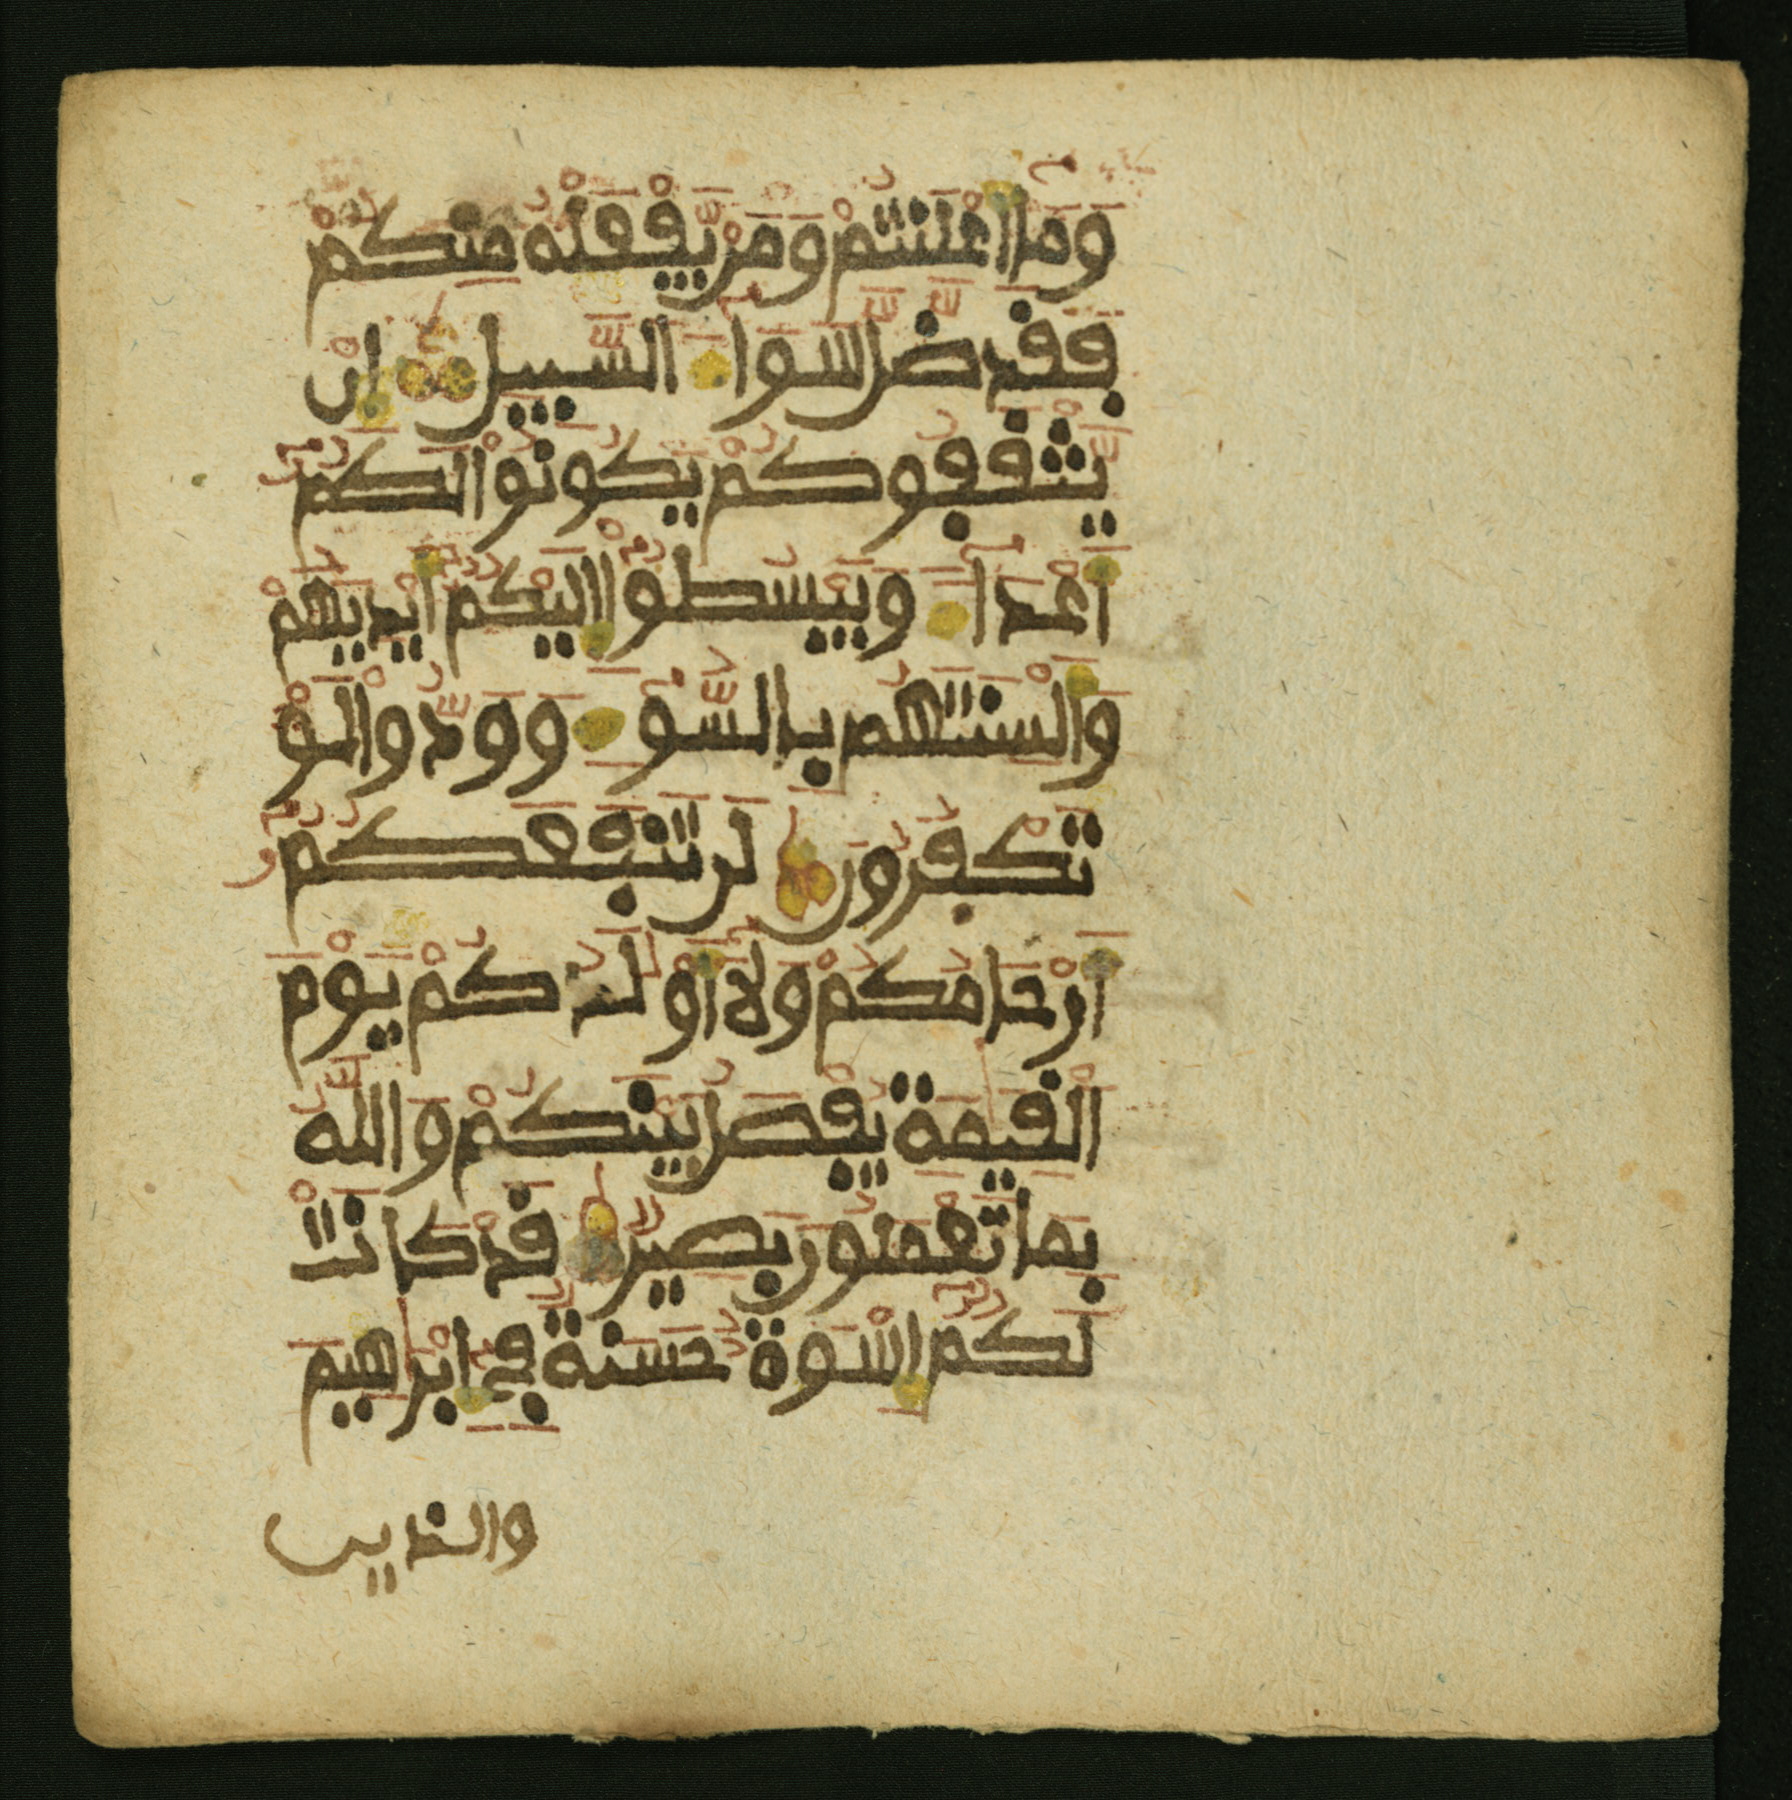 وَمَا أَعْلَنتُمْ وَمَنْ يَّفْعَلْهُ مِنكُمْ
فَقَد ضَّلَّ سَوَاءَ السَّبِيلِ إِنْ
يَّثْقَفُوكُمْ يَكُونُوا لَكُمْ
أَعْدَاءً وَيَبْسُطُوا إِلَيْكُمْ أَيْدِيَهُمْ
وَأَلْسِنَتَهُم بِالسُّوءِ وَوَدُّوا لَوْ
تَكْفُرُونَ لَن تَنفَعَكُمْ
أَرْحَامُكُمْ وَلَا أَوْلَٰدُكُمْ يَوْمَ
الْقِيَٰمَةِ يُفْصَلُ بَيْنَكُمْ وَاللَّهُ
بِمَا تَعْمَلُونَ بَصِيرٌ قَدْ كَانَتْ
لَكُمْ إِسْوَةٌ حَسَنَةٌ فِي إِبْرَٰهِيمَ
والذين